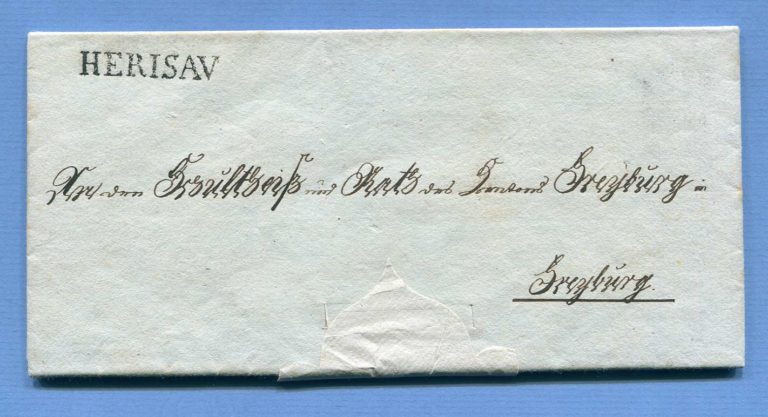 HERISAV
An den Schultheiß und Rath des Cantons Freyburg in
Freyburg.